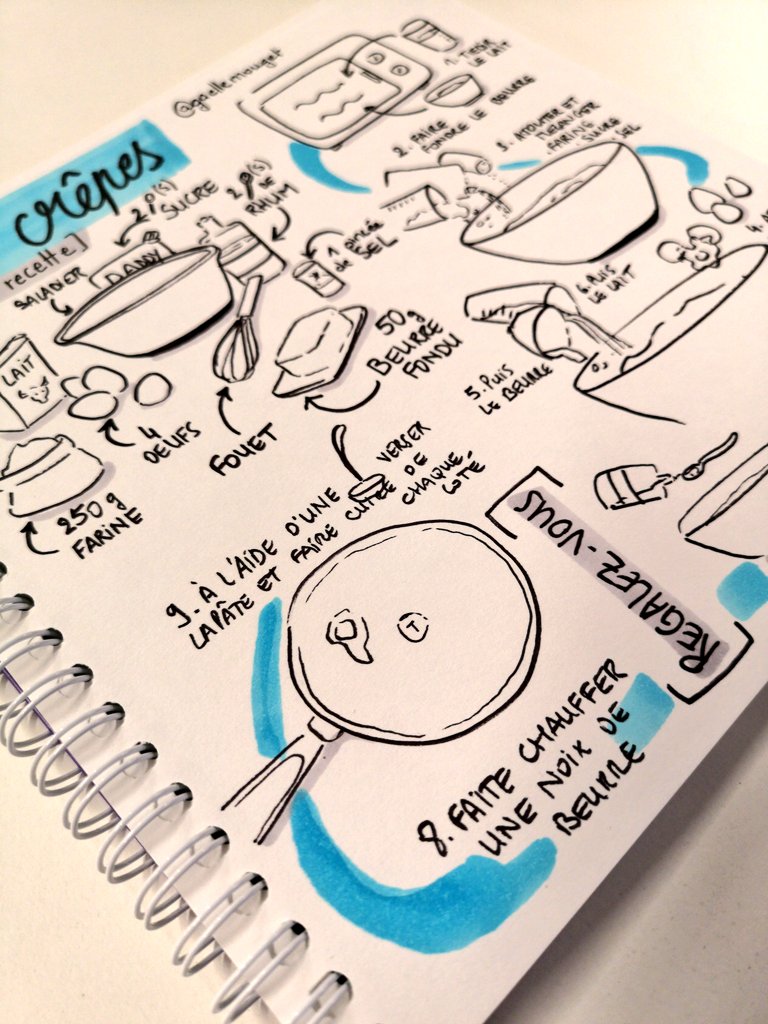 @gaellemouget
crêpes
recette
SALADIER
DADDY
SUCRE
RHUM
1 pincée
de SEL
LAIT
4
OEUFS
FOUET
50g
BEURRE
FONDU
250g
FARINE
1. TIEDIR
LE LAIT
2. FAIRE
FONDRE LE BEURRE
3. AJOUTER ET
MELANGER
. FARINE
. SUCRE
. SEL
4.
5. PUIS
LE BEURRE
6. PUIS
LE LAIT
8. FAITE CHAUFFER
UNE NOIX DE
BEURRE
T
9. À L'AIDE D'UNE
VERSER
LA PÂTE ET FAIRE CUIRE DE
CHAQUE
COTÉ
REGALEZ-VOUS